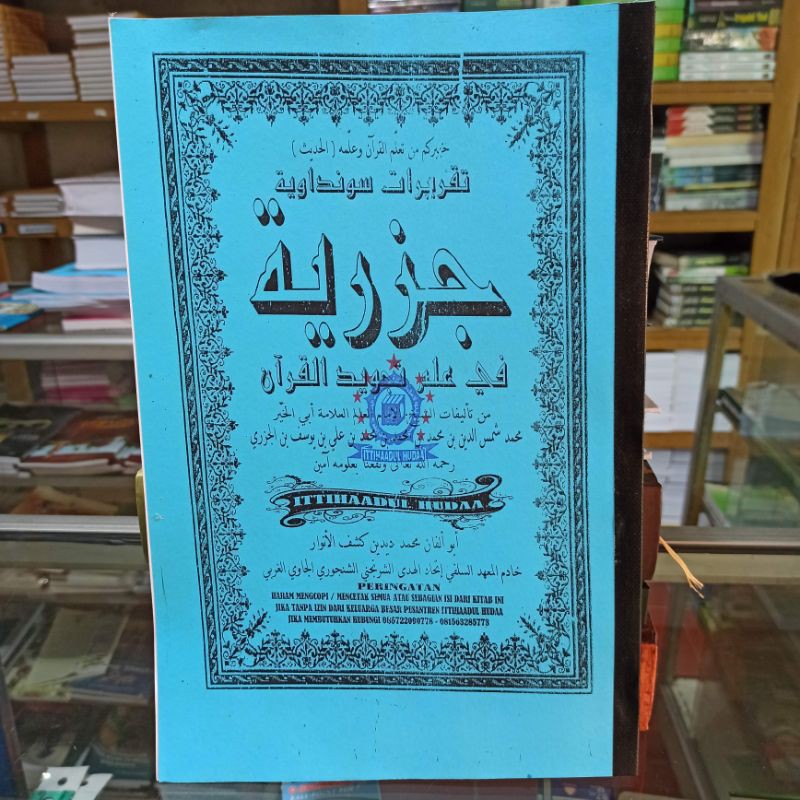 خيركم من تعلّم القرآن وعلّمه ( الحديث )
تقريرات سونداوية
جزرية
في علم تجويد القرآن
من تأليفات الشيخ الإمام العلامة أبي الخير
محمد شمس الدين بن محمد بن محمد بن علي بن يوسف بن الجزري
رحمه الله تعالى ونفعنا بعلومه آمين
ITTIHAADUL HUDAA
ITTIHAADUL HUDAA
أبو ألفان محمد ديدين كشف الأنوار
خادم المعهد السلفي إتحاد الهدى الشنجوري الجاوي الغربي
PERINGATAN
HARAM MENGCOPI / MENCETAK SEMUA ATAU SEBAGIAN ISI DARI KITAB INI
JIKA TANPA IZIN DARI KELUARGA BESAR PESANTREN ITTIHAADUL HUDAA
JIKA MEMBUTUHKAN HUBUNGI 085722090778 - 081563285773